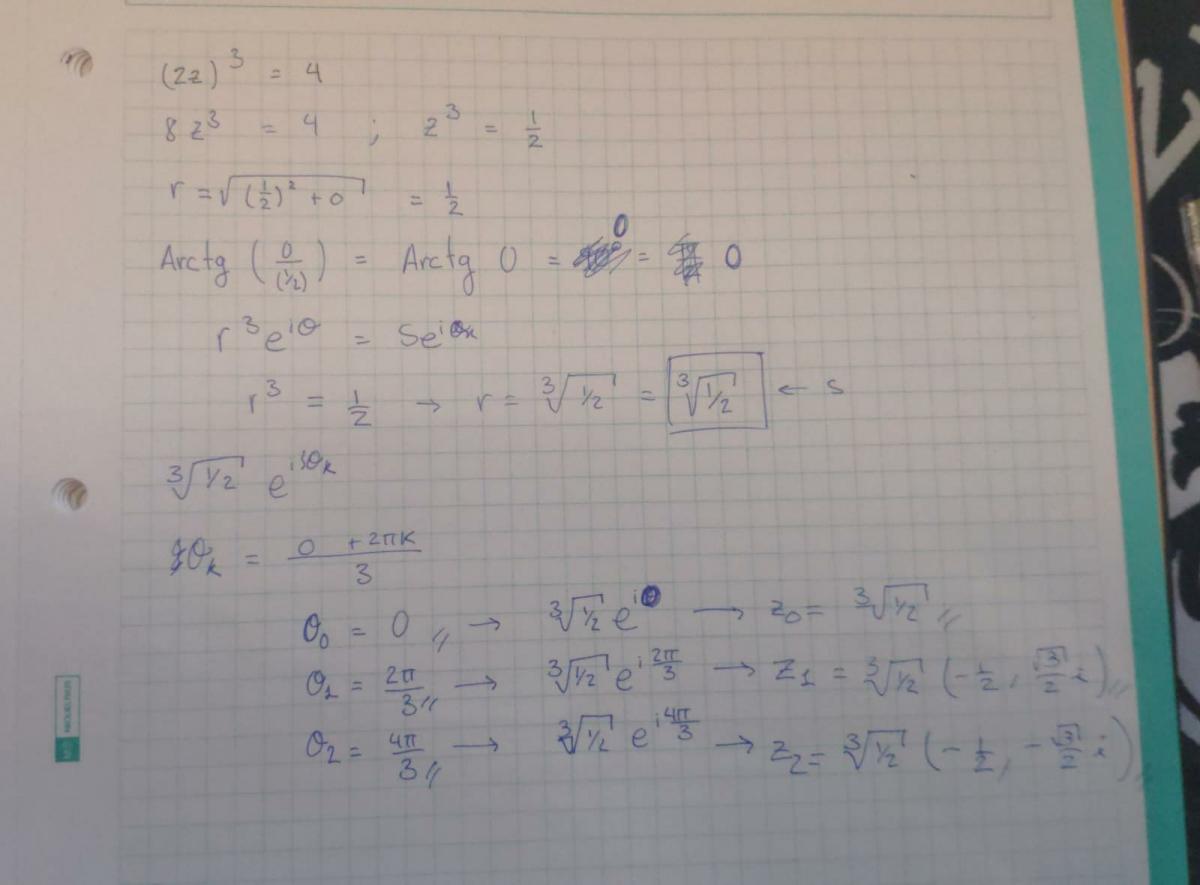 (2z)³ = 4
8z³ = 4 ; z³ = 1/2
r = √((1/2)² + 0) = 1/2
Arctg (0/(1/2)) = Arctg 0 = 0 = 0
r³e^{iθ} = Se^{iθₖ}
r³ = 1/2 → r = ∛(1/2) = ∛(1/2) ← s
∛(1/2) e^{i3θₖ}
θₖ = (0 + 2πK)/3
θ₀ = 0 → ∛(1/2) e^{i0} → z₀ = ∛(1/2)
θ₁ = 2π/3 → ∛(1/2) e^{i2π/3} → z₁ = ∛(1/2) (-1/2, √3/2 i)
θ₂ = 4π/3 → ∛(1/2) e^{i4π/3} → z₂ = ∛(1/2) (-1/2, -√3/2 i)